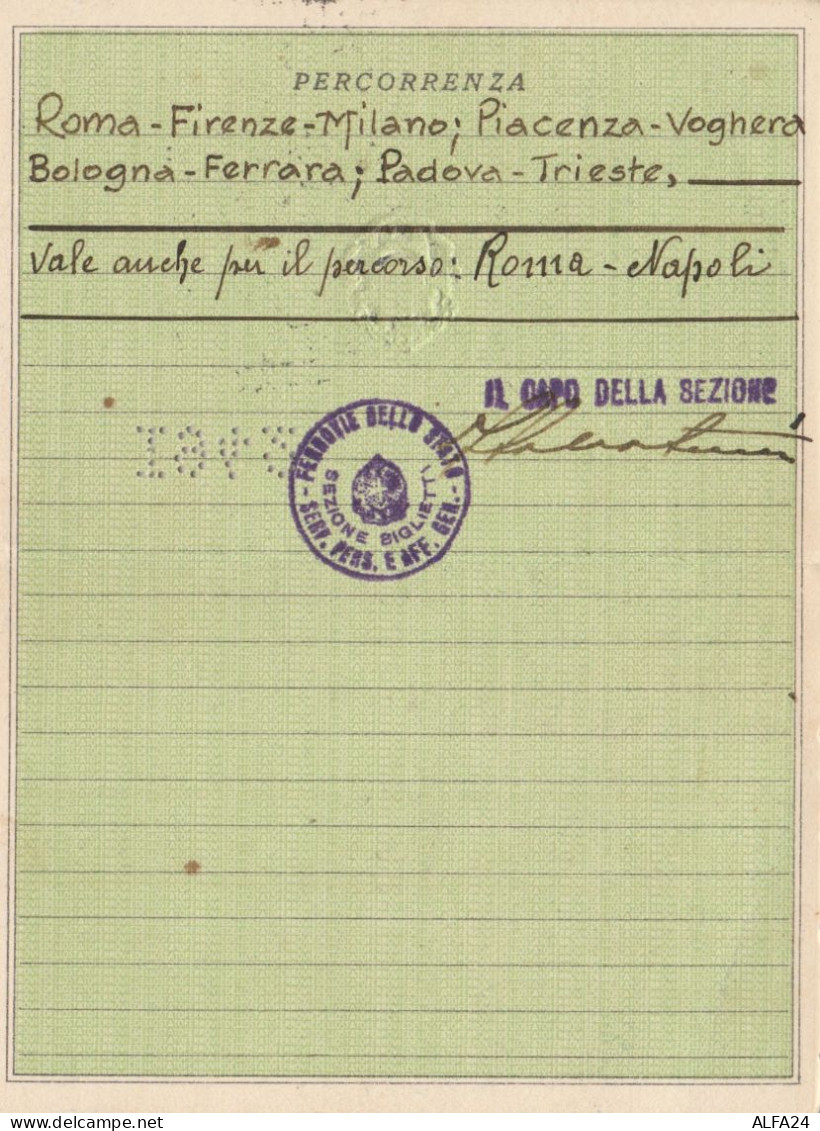 PERCORRENZA
Roma - Firenze - Milano; Piacenza - Voghera
Bologna - Ferrara; Padova - Trieste,
Vale anche per il percorso: Roma - Napoli
IL CAPO DELLA SEZIONE
- FERROVIE DELLO STATO -
SERV. PERS. E AFF. GEN.
SEZIONE BIGLIETTI
delcampe.net
ALFA24